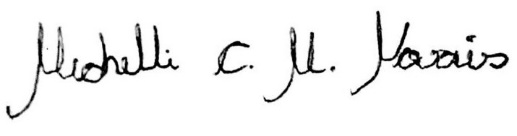 Michelli C. M. Morais